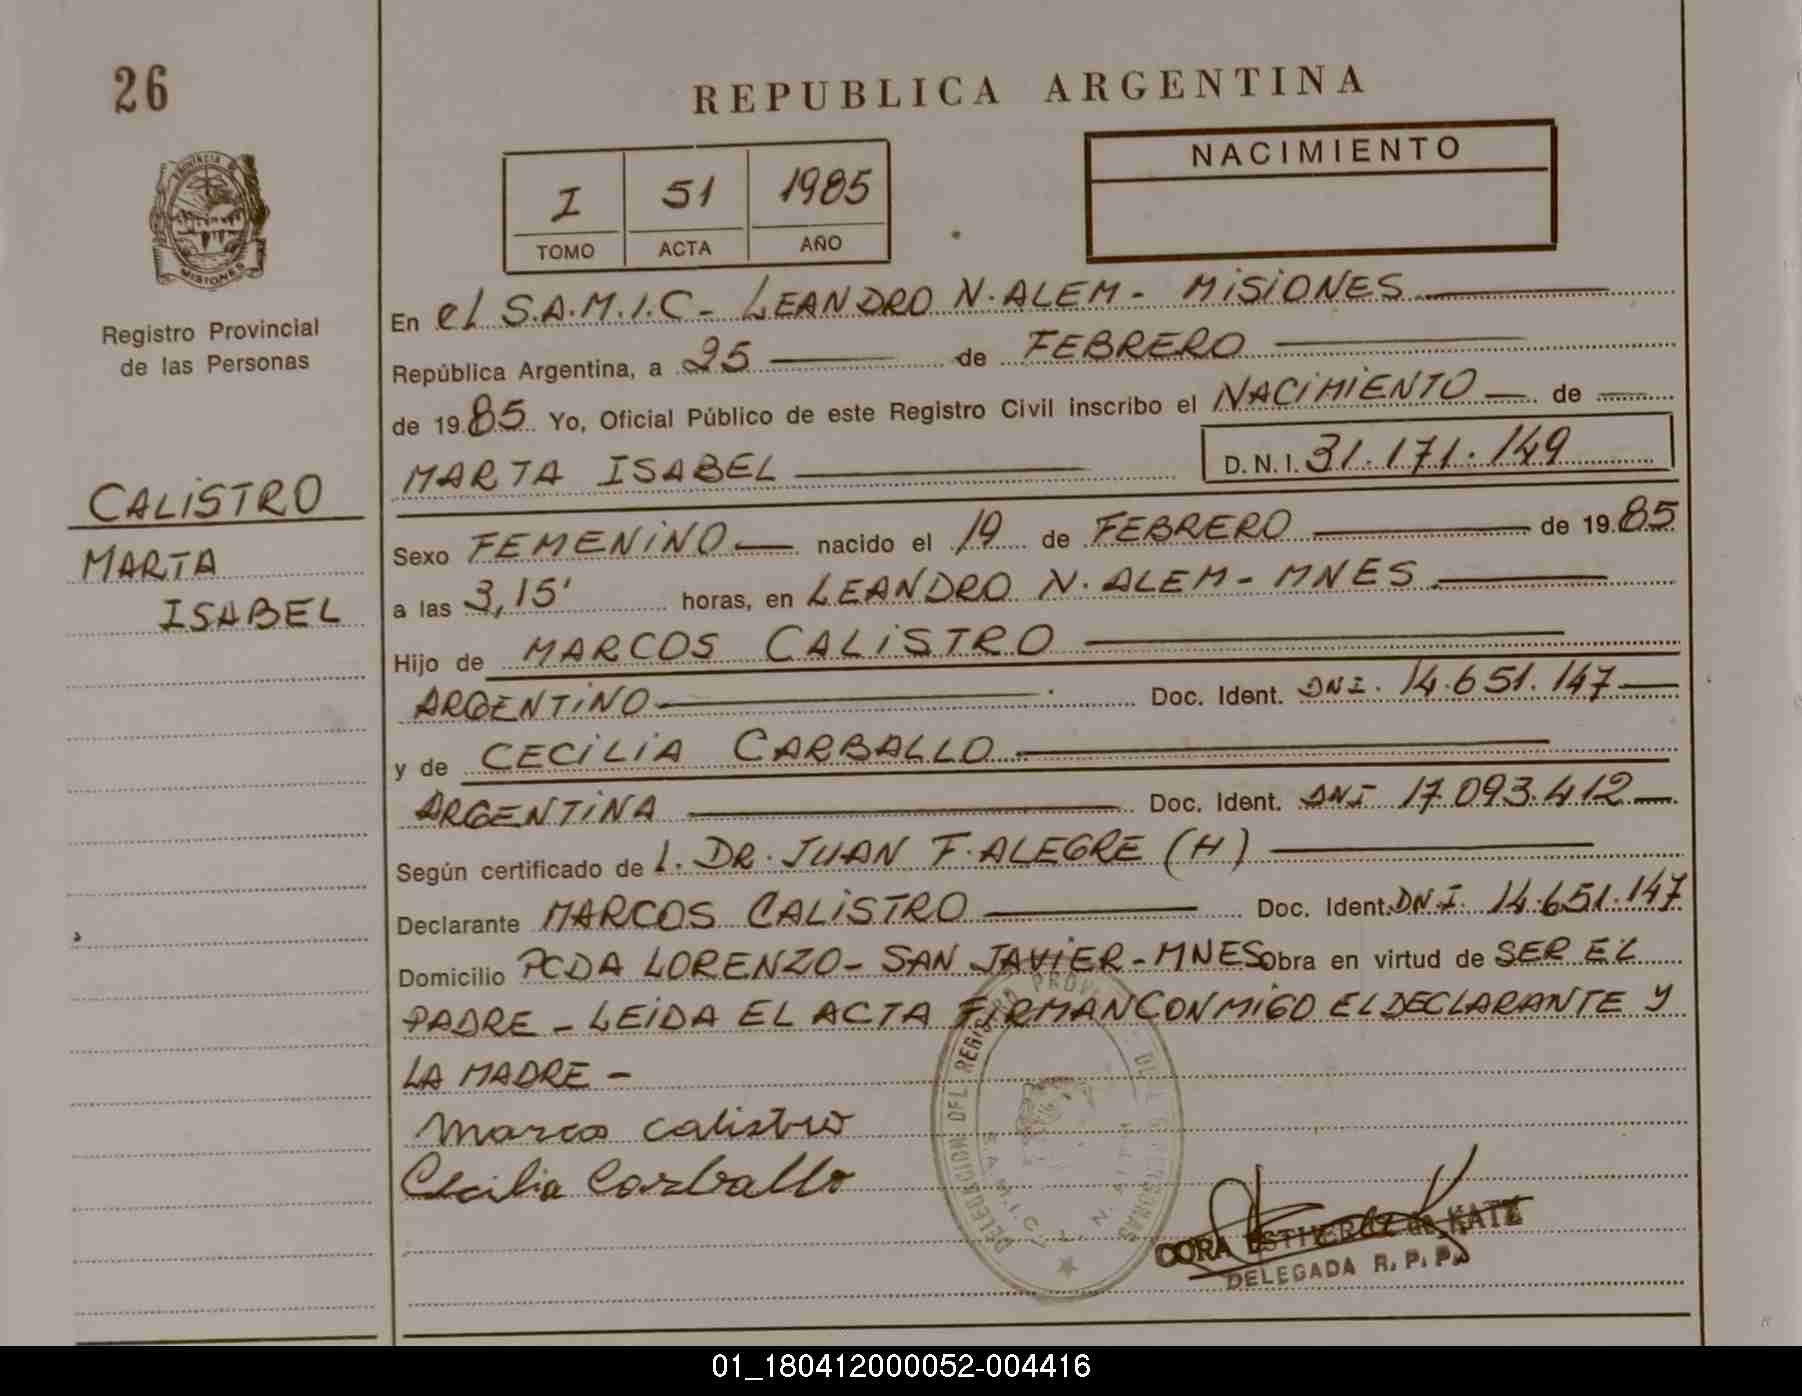 26
REPUBLICA ARGENTINA
PROVINCIA DE
MISIONES
Registro Provincial
de las Personas
I 51 1985
TOMO ACTA AÑO
NACIMIENTO
CALISTRO
MARTA
ISABEL
En el S.A.M.I.C - LEANDRO N. ALEM - MISIONES
República Argentina, a 25 de FEBRERO
de 1985 Yo, Oficial Público de este Registro Civil inscribo el NACIMIENTO de
MARTA ISABEL D.N.I. 31.171.149
Sexo FEMENINO nacido el 19 de FEBRERO de 1985
a las 3,15' horas, en LEANDRO N. ALEM - MNES
Hijo de MARCOS CALISTRO
ARGENTINO Doc. Ident. DNI. 14.651.147
y de CECILIA CARBALLO
ARGENTINA Doc. Ident. DNI 17.093.412
Según certificado de L. DR. JUAN F. ALEGRE (H)
Declarante MARCOS CALISTRO Doc. Ident. DN.I. 14.651.147
Domicilio PCDA LORENZO - SAN JAVIER - MNES Obra en virtud de SER EL
PADRE - LEIDA EL ACTA FIRMAN CONMIGO EL DECLARANTE Y
LA MADRE -
Marcos Calistro
Cecilia Carballo
DELEGACION DEL REGISTRO
CORA ESTHER de KATZ
DELEGADA R. P. P.
01_180412000052-004416